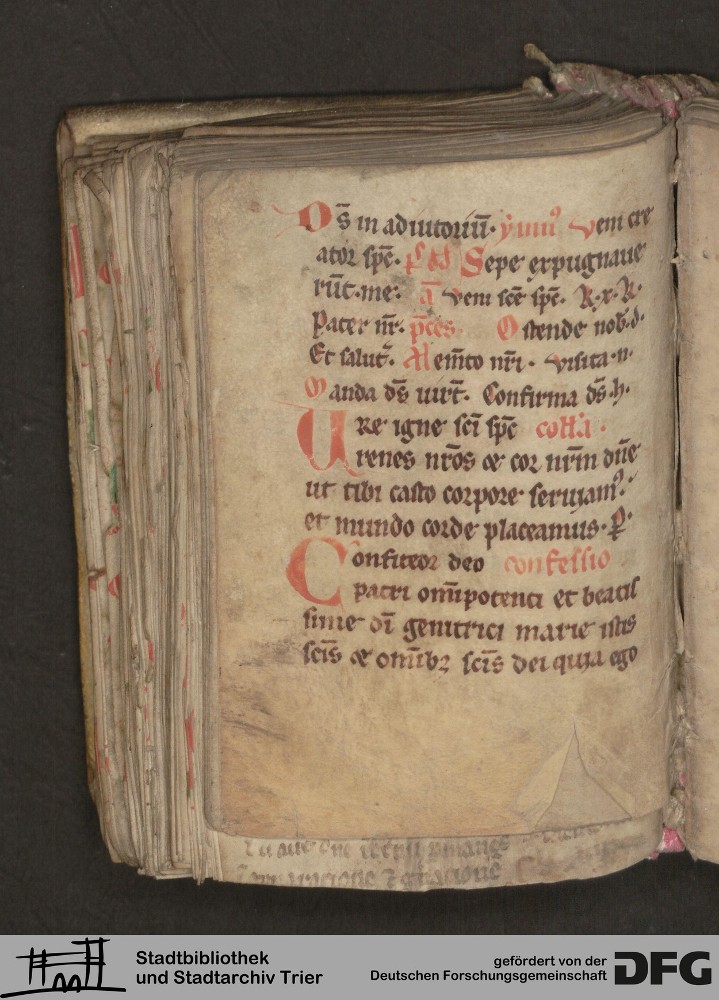 Ds̄ in adiutoriū. ẏmn⁹ Veni cre
ator spē. ps̄ Sepe expugnaue
rūt.me. ā Veni scē spē. k.x.k.
Pater nr̄. p̄ces. Ostende nob̄.d.
Et salut̄. Memto nr̄i. visita.n.
Manda ds̄ uirt̄. Confirma ds̄.h.
Ure igne scī spē coll̄a.
renes nr̄os & cor nr̄m dn̄e
ut tibi casto corpore seruiam⁹.
et mundo corde placeamus. P̄.
Confiteor deo confessio
patri om̄ipotenti et beatis
sime dī genitrici marie istis
scīs & om̄ibꝫ scīs dei quia ego
Stadtbibliothek
und Stadtarchiv Trier
gefördert von der
Deutschen Forschungsgemeinschaft DFG